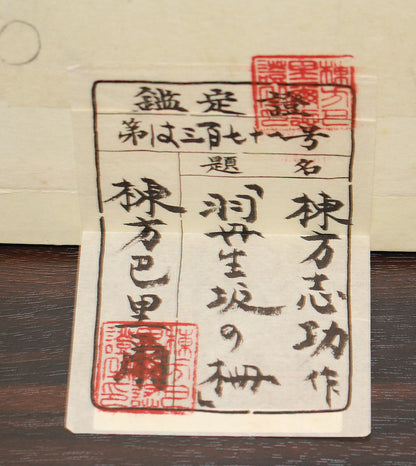 鑑定證
第は三百七十八号
題名
棟方志功作
「羽丹生坂の柵」
棟方巴里爾